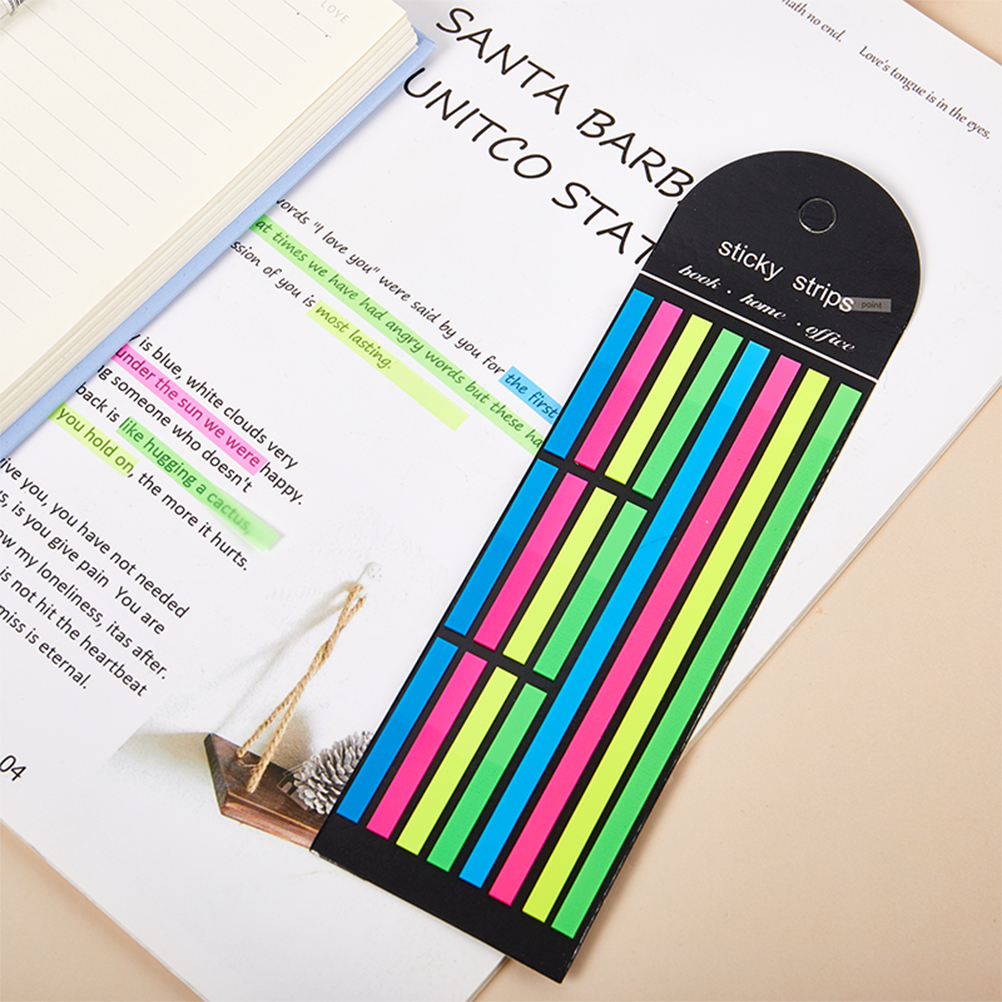 LOVE
math no end. Love's tongue is in the eyes.
SANTA BARB
UNITCO STAT
words "I love you" were said by you for the first
at times we have had angry words but these ha
ssion of you is most lasting.
y is blue, white clouds very
under the sun we were happy.
ng someone who doesn't
back is like hugging a cactus,
you hold on, the more it hurts.
give you, you have not needed
s, is you give pain You are
ow my loneliness, itas after.
is not hit the heartbeat
miss is eternal.
04
sticky strips
point
book · home · office